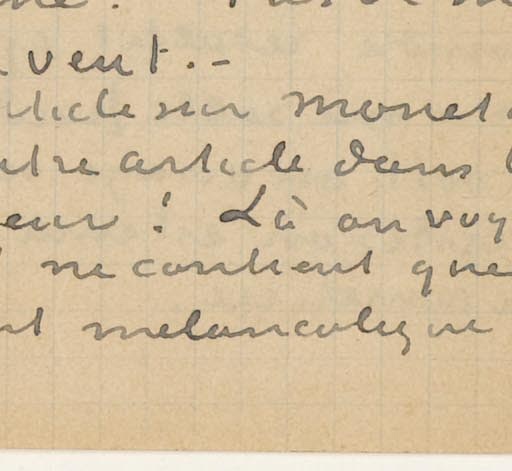 vent.-
article sur monet
utre article dans l
eur ! Là on voy
ne contient que
nt melancolique